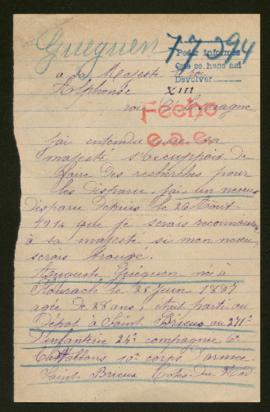 Gueguen
7-7294
Pedir informes
Que se haga asi
Devolver
a sa Majesté Roi
Alphonse XIII
roi Espagne
Fecho
jai entendu
majesté s'occuppait de
faire des recherches pour
les disparu jai un neveu
disparu depuis le 26 Aout
1914 que je serais reconnaissant
à sa majesté si mon neveu
serais trouvé.
Gueguen né à
le 25 juin 1887
agée de 28 ans, était parti au
Dépot à Saint Brieuc au 271e
d'infanterie 24e compagnie 6e
10e corps d'armée
Saint Brieuc Cotes-du-Nord